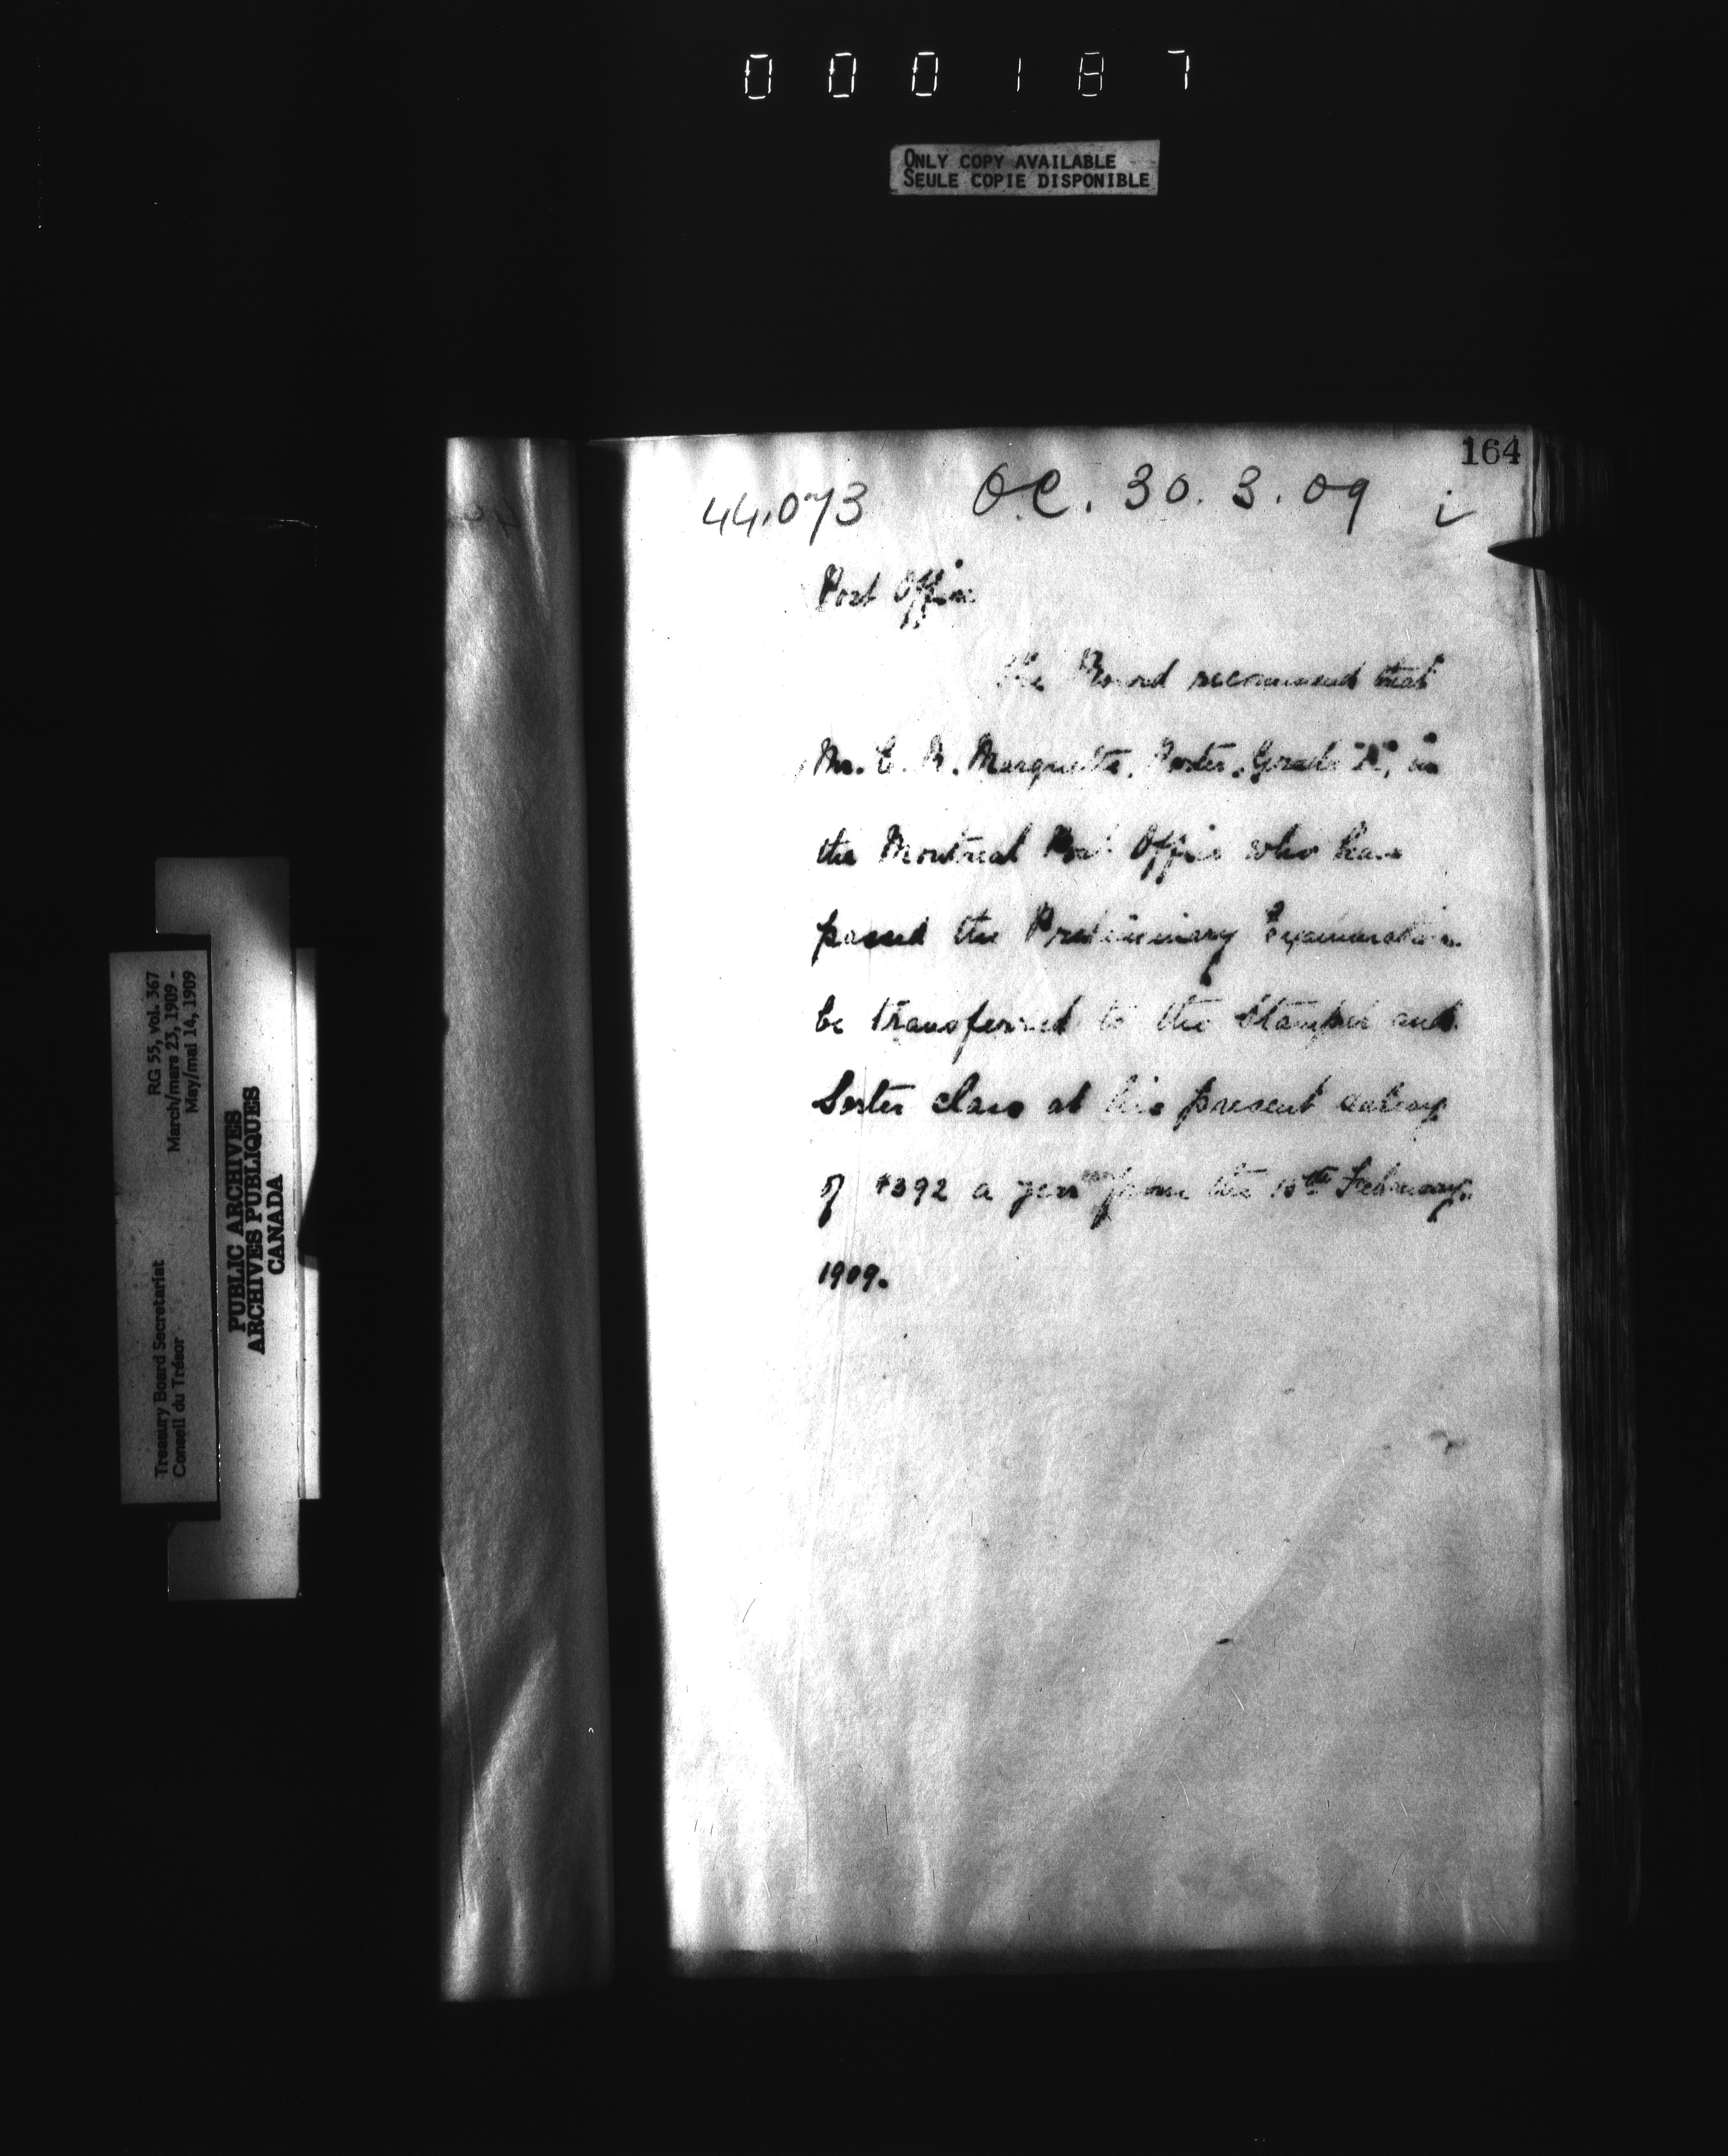 000187
ONLY COPY AVAILABLE
SEULE COPIE DISPONIBLE
164
44,073 O.C. 30.3.09
Post Office
The Board recommend that
Mr. C. Marquette, Porter, Grade in
the Montreal Post Office who has
passed the Preliminary Examination
be transferred to the Stamper and
Sorter class at his present salary
of $392 a year from the February,
1909.
RG 55, vol. 367
March/mars 23, 1909 -
May/mai 14, 1909
Treasury Board Secretariat
Conseil du Trésor
PUBLIC ARCHIVES
ARCHIVES PUBLIQUES
CANADA